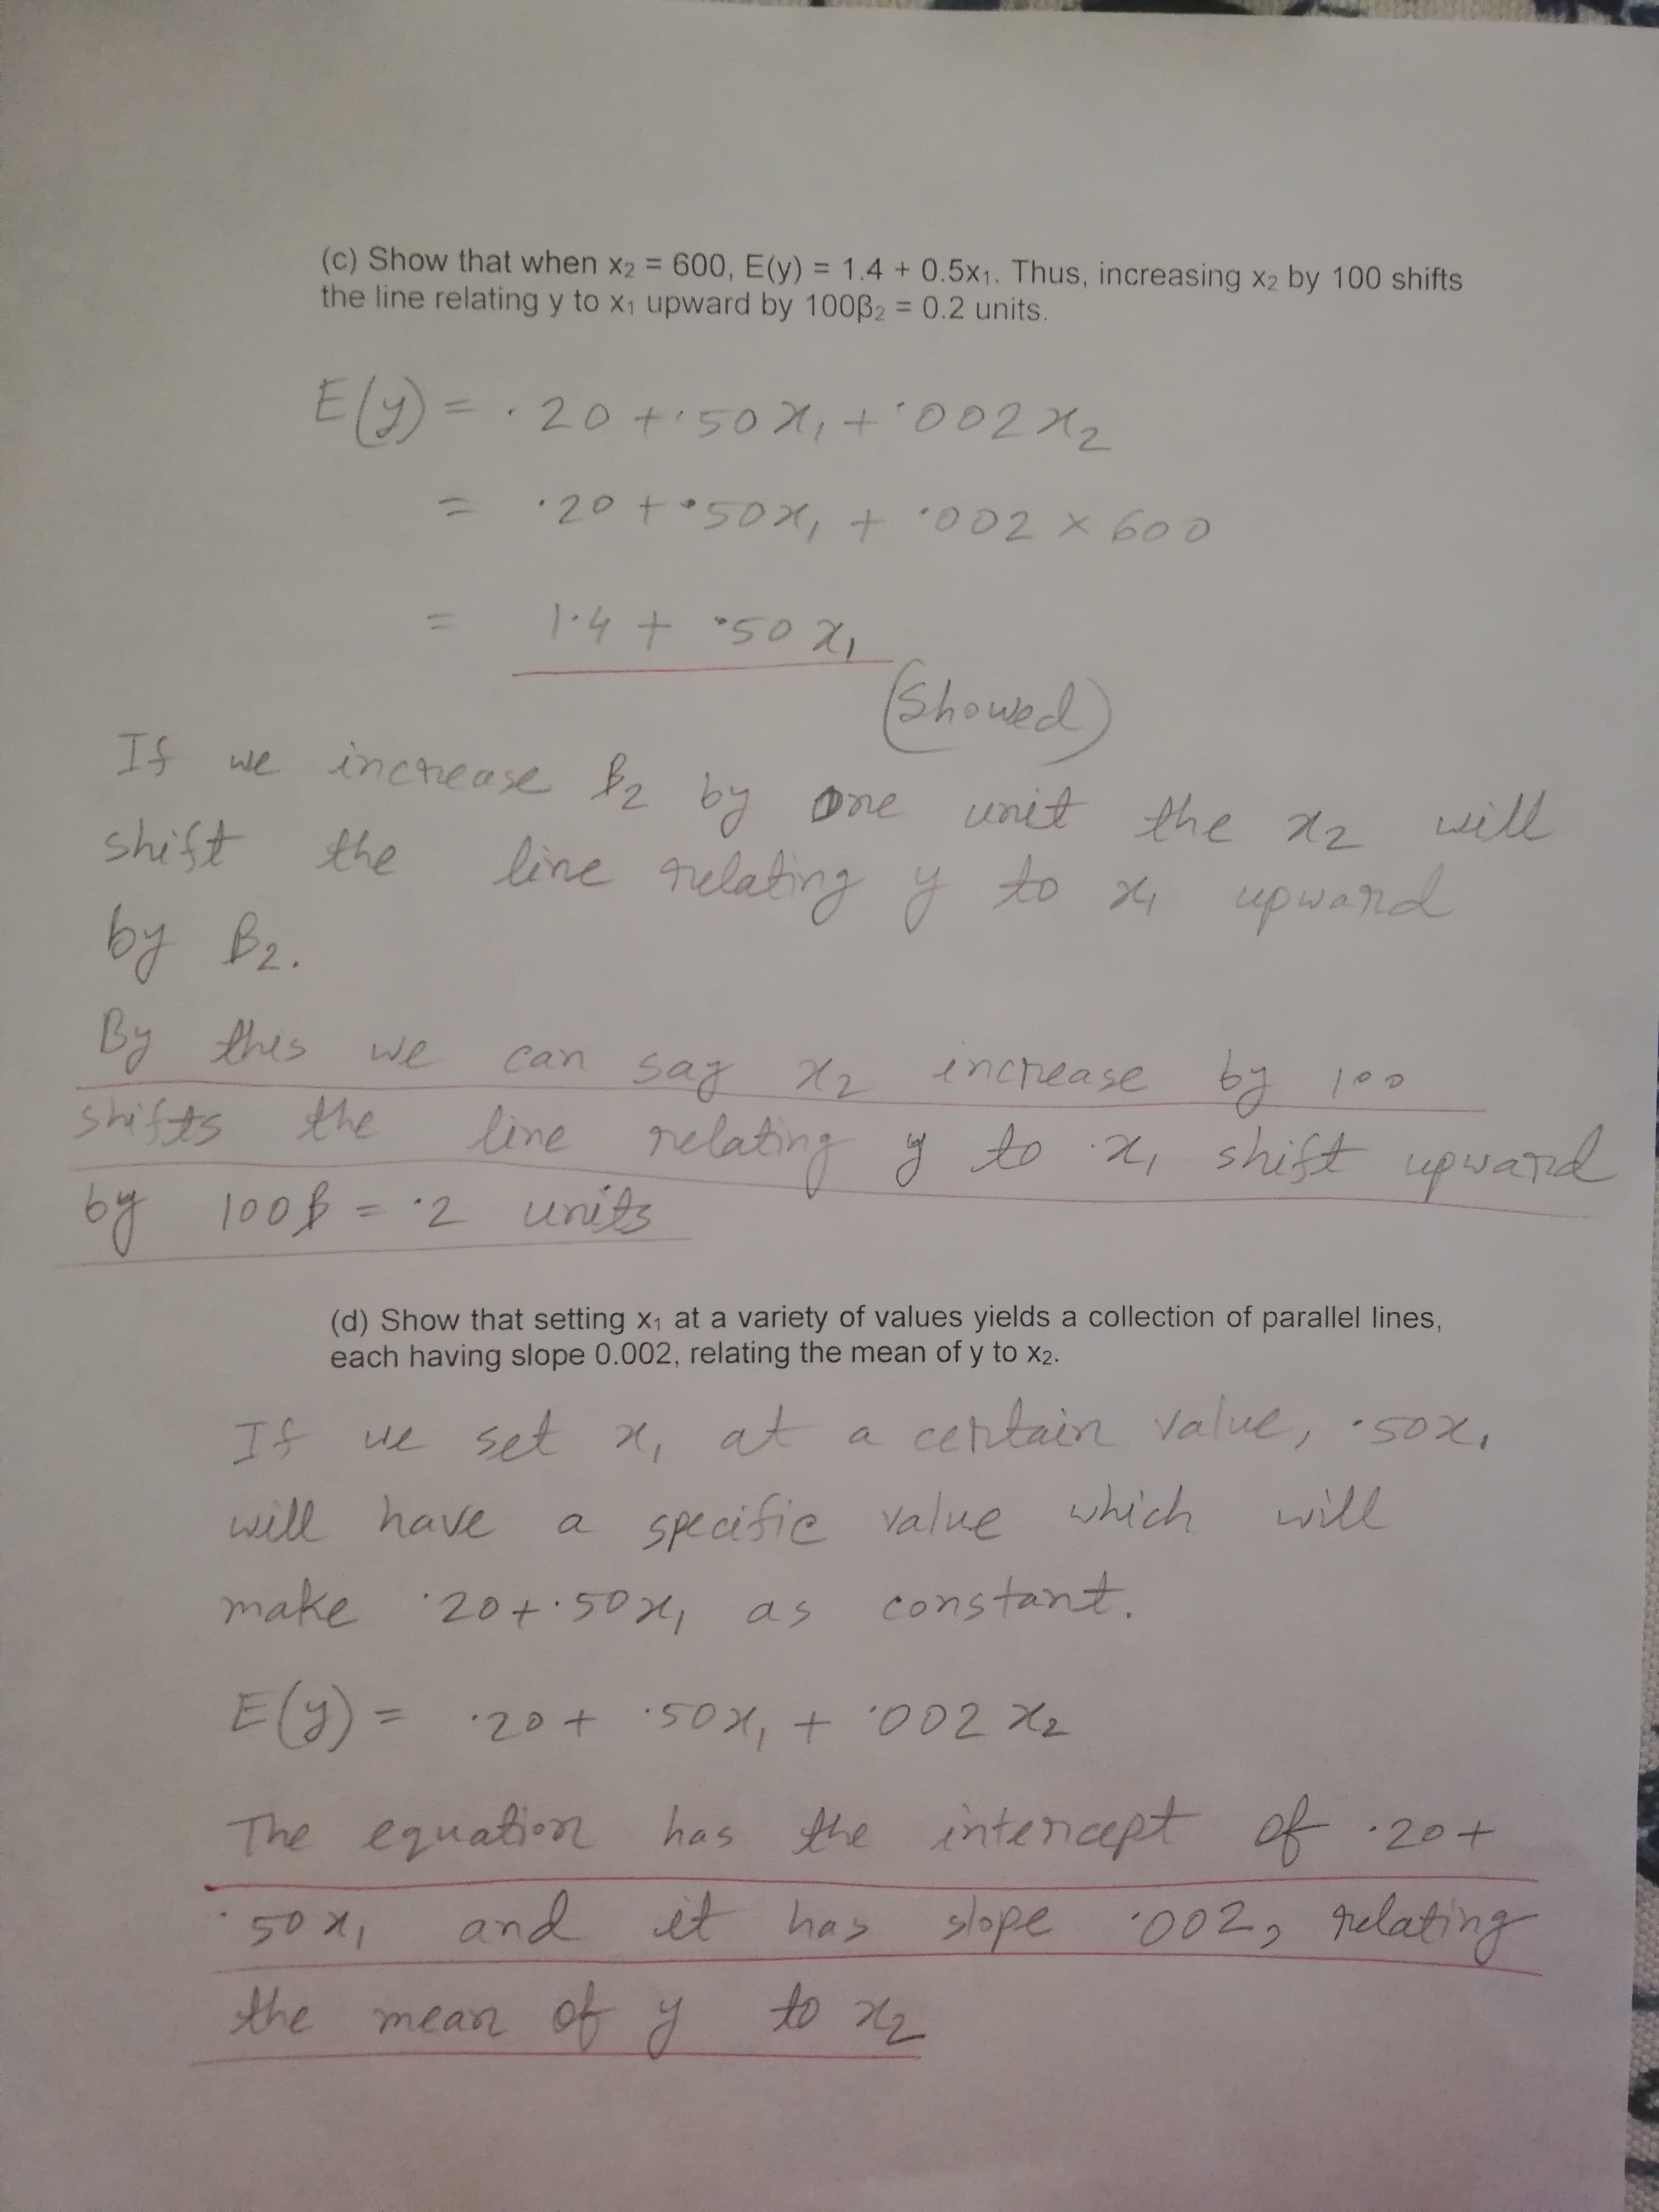 (c) Show that when x₂ = 600, E(y) = 1.4 + 0.5x₁. Thus, increasing x₂ by 100 shifts
the line relating y to x₁ upward by 100β₂ = 0.2 units.
E(y) = .20 + .50x₁ + .002x₂
= .20 + .50x₁ + .002 × 600
= 1.4 + .50x₁
(Showed)
If we increase β₂ by one unit the x₂ will
shift the line relating y to x₁ upward
by β₂.
By this we can say x₂ increase by 100
shifts the line relating y to x₁ shift upward
by 100β = .2 units
(d) Show that setting x₁ at a variety of values yields a collection of parallel lines,
each having slope 0.002, relating the mean of y to x₂.
If we set x₁ at a certain value, .50x₁
will have a specific value which will
make .20+.50x₁ as constant.
E(y) = .20 + .50x₁ + .002x₂
The equation has the intercept of .20+
.50x₁ and it has slope .002, relating
the mean of y to x₂